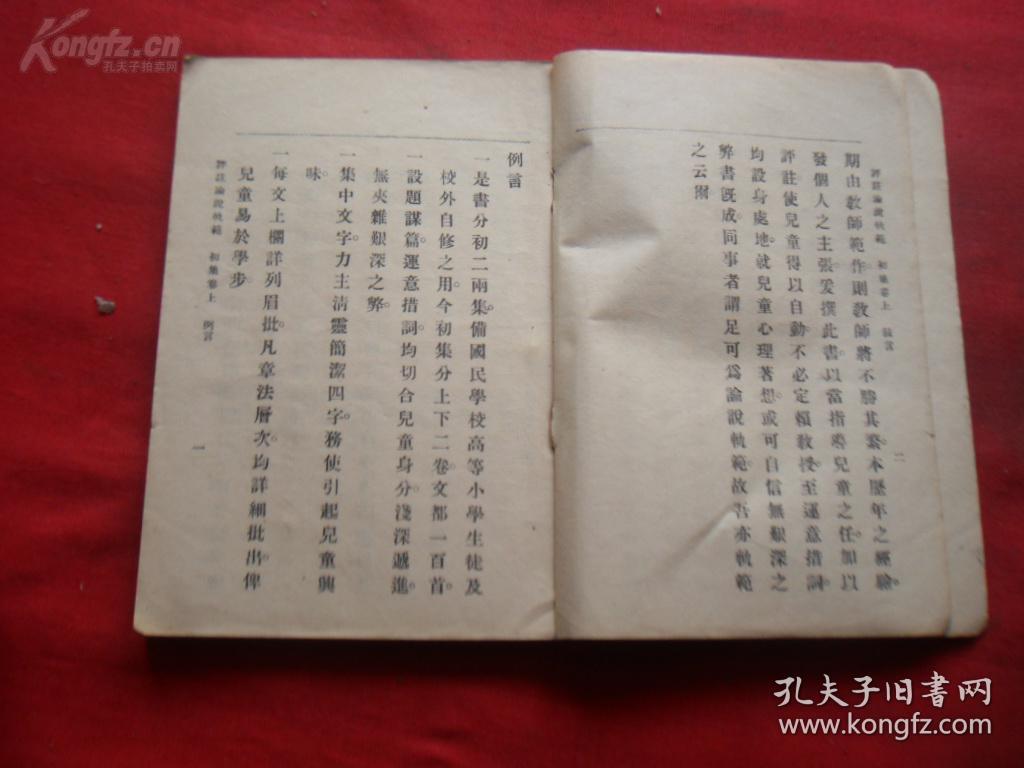 期由敎師範作則敎師將不勝其繁本歷年之經驗。
發個人之主張爰撰此書。以當指導兒童之任。加以
評註使兒童得以自動不必定賴敎授。至運意措詞。
均設身處地。就兒童心理著想。或可自信無艱深之
弊書旣成同事者謂足可爲論說軌範。故吾亦軌範
之云爾
評註論說軌範 初集卷上 弁言
二
例言
一是書分初二兩集。備國民學校高等小學生徒及
校外自修之用。今初集分上下二卷。文都一百首。
一設題謀篇。運意措詞。均切合兒童身分。淺深遞進。
無夾雜艱深之弊。
一集中文字。力主淸靈簡潔四字。務使引起兒童興
味。
一每文上欄詳列眉批。凡章法層次。均詳細批出。俾
兒童易於學步。
評註論說軌範 初集卷上 例言
一
Kongfz.cn
孔夫子拍卖网
孔夫子旧书网
www.kongfz.com